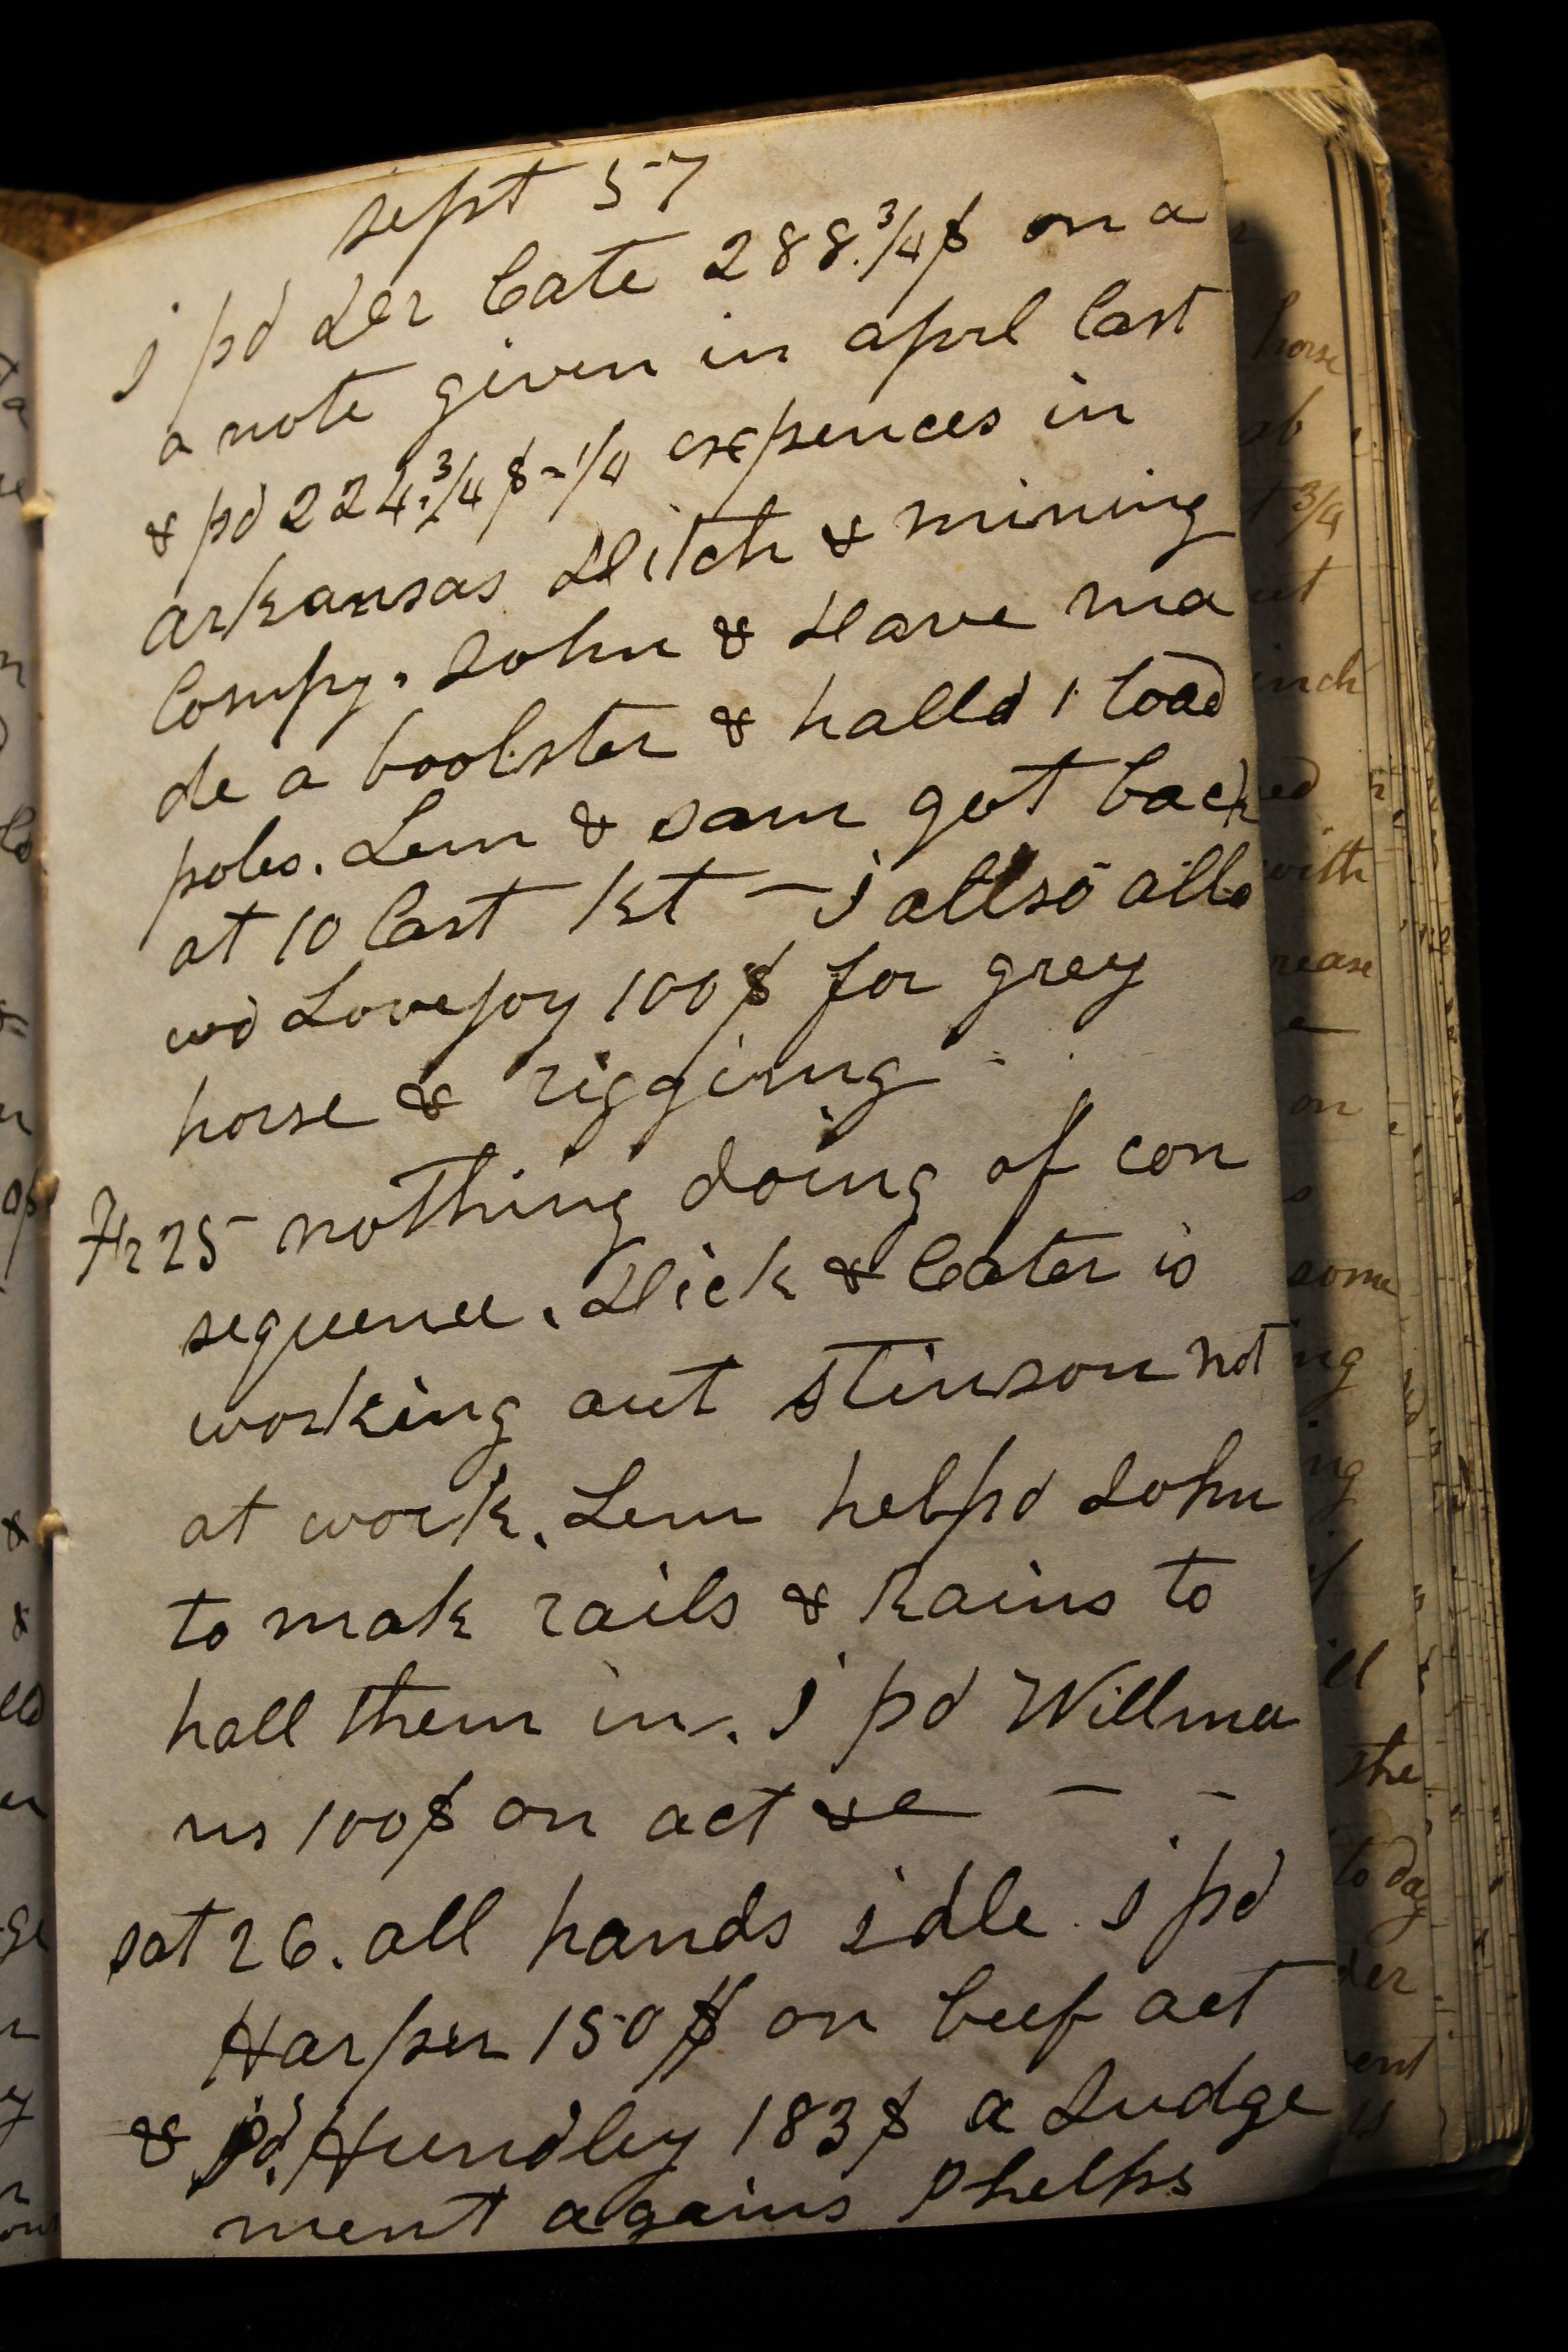 sept 57
i pd Der Cate 288.3/4$ on a
a note given in aprl last
& pd 224.3/4$-1/4 expences in
arkansas Ditch & mining
Compy. John & Dave ma
de a boolster & halld 1 load
poles. Lem & Sam got back
at 10 last Nt - i allso allo
wd Lovejoy 100$ for grey
horse & riggining
Fr 25 nothing doing of con
sequence. Dick & Cater is
working out Stinson not
at work. Lem helpd John
to mak rails & Rains to
hall them in. i pd Willma
ns 100$ on act &c
sat 26. all hands idle i pd
Harper 150$ on beef act
& pd. Hundley 183$ a Judge
ment agains Phelps